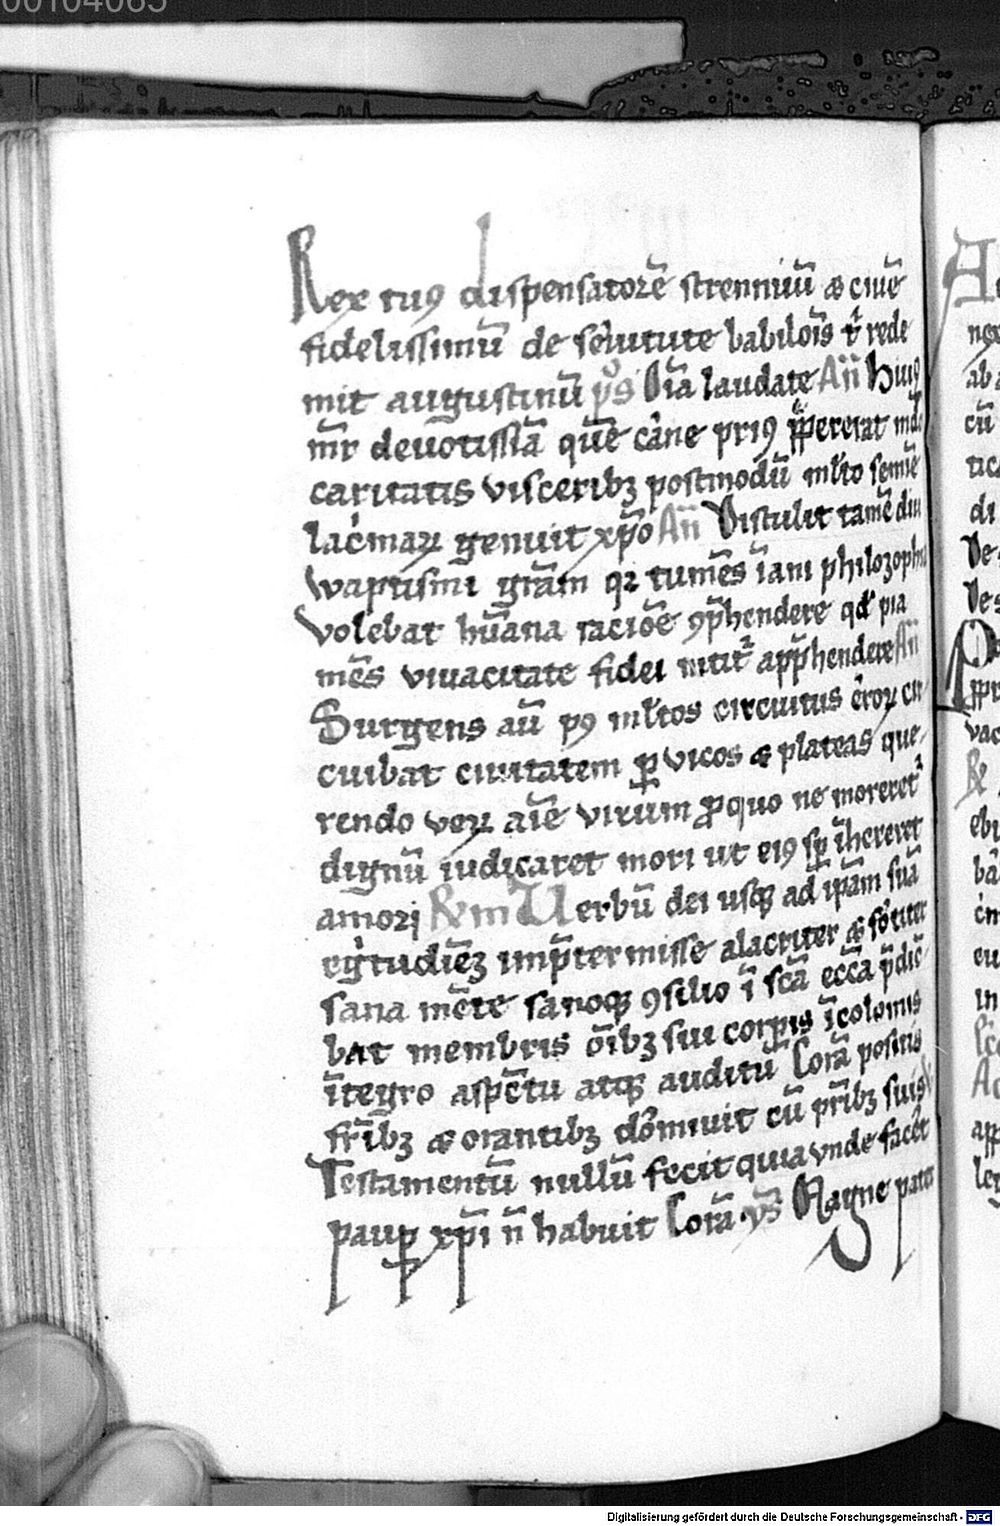 00104065
Rex tuꝰ dispensatorē strenniuū ⁊ ciuē
fidelissimū de seruitute babilois rede
mit augustinū p̄s Oīa laudate An̄ huiꝰ
mr̄ deuotissīa quē carne priꝰ
caritatis visceribꝫ postmodū mlto semie
lacrimaꝝ genuit xp̄o An̄ Distulit tamē diu
waptismi grām qꝛ tumēs iani philozophia
volebat hūana racioē ꝯp̄hendere qd pia
mēs viuacitate fidei nitit app̄hendere An̄
Surgens aū pꝰ mltos circuitus erroꝝ cir
cuibat ciuitatem ꝑ vicos ⁊ plateas que
rendo veꝝ aīe virum ꝓ quo ne moreret
dignū iudicaret mori ut eiꝰ sp īhereret
amori Uerbū dei usqꝫ ad ip̄am suā
egritudiēꝫ imp̄termisse alacriter ⁊ fortiter
sana mēte sanoqꝫ ꝯsilio ī scā ecc̄a p̄dic
bat membris oībꝫ sui corpis īcolomis
ītegro aspectu atqꝫ auditū Corā positis
fr̄ibꝫ ⁊ orantibꝫ dormiuit cū pr̄ibꝫ suis
Testamentū nullū fecit quia vnde facet
paup xp̄i n̄ habuit Corā ys̄ Magne pater
Digitalisierung gefördert durch die Deutsche Forschungsgemeinschaft - DFG